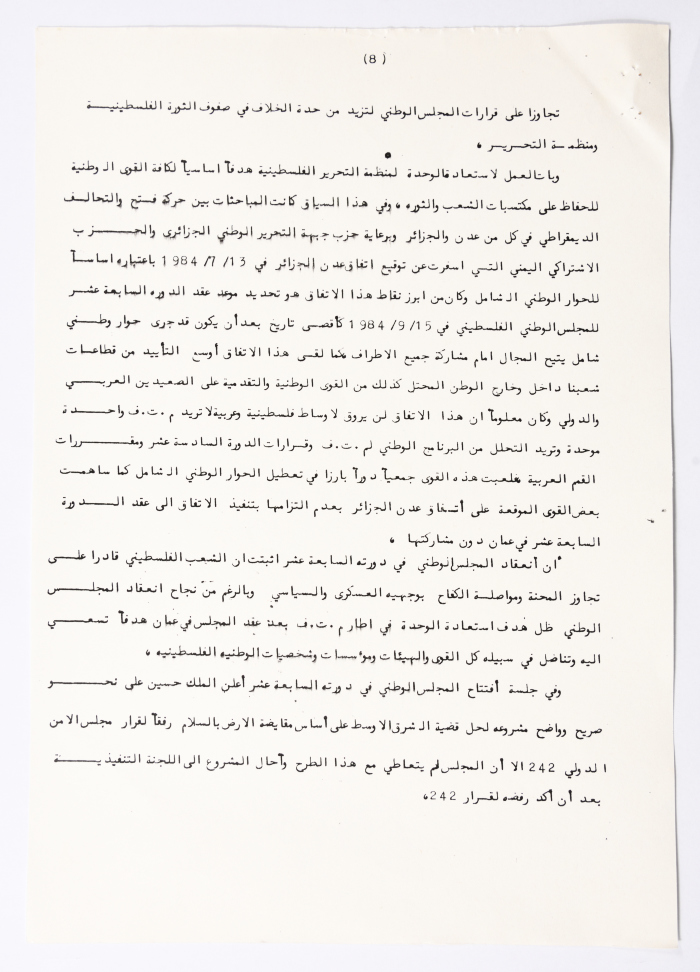 (8)
تجاوزا على قرارات المجلس الوطني لتزيد من حدة الخلاف في صفوف الثورة الفلسطينية
ومنظمة التحرير ،
وبات العمل لاستعادة الوحدة لمنظمة التحرير الفلسطينية هدفاً اساسياً لكافة القوى الوطنية
للحفاظ على مكتسبات الشعب والثوره ، وفي هذا السياق كانت المباحثات بين حركة فستح والتحالف
الديمقراطي في كل من عدن والجزائر وبرعاية حزب جبهة التحرير الوطني الجزائري والحزب
الاشتراكي اليمني التي اسفرت عن توقيع اتفاق عدن الجزائر في 13 /7 /1984 باعتباره اساساً
للحوار الوطني الشامل وكان من ابرز نقاط هذا الاتفاق هو تحديد موعد عقد الدوره السابعة عشر
للمجلس الوطني الفلسطيني في 15 /9 /1984 كأقصى تاريخ بعد أن يكون قد جرى حوار وطني
شامل يتيح المجال امام مشاركة جميع الاطراف مما لقى هذا الاتفاق أوسع التأييد من قطاعات
شعبنا داخل وخارج الوطن المحتل كذلك من القوى الوطنية والتقدمية على الصعيدين العربي
والدولي وكان معلوماً ان هذا الاتفاق لن يروق لاوساط فلسطينية وعربية لا تريد م .ت.ف واحدة
موحدة وتريد التحلل من البرنامج الوطني لم .ت.ف وقرارات الدورة السادسة عشر ومقررات
القم العربية فلعبت هذه القوى جمعياً دوراً بارزا في تعطيل الحوار الوطني الشامل كما ساهمت
بعض القوى الموقعة على أتفاق عدن الجزائر بعدم التزامها بتنفيذ الاتفاق الى عقد الدورة
السابعة عشر في عمان دون مشاركتها ،
أن أنعقاد المجلس الوطني في دورته السابعة عشر اثبتت ان الشعب الفلسطيني قادرا على
تجاوز المحنة ومواصلة الكفاح بوجهيه العسكرى والسياسي وبالرغم من نجاح انعقاد المجلس
الوطني ظل هدف استعادة الوحدة في اطار م .ت.ف بعد عقد المجلس في عمان هدفاً تسعى
اليه وتناضل في سبيله كل القوى والهيئات ومؤسسات وشخصيات الوطنيه الفلسطينيه ،
وفي جلسة أفتتاح المجلس الوطني في دورته السابعة عشر أعلن الملك حسين على نحو
صريح وواضح مشروعه لحل قضية الشرق الاوسط على أساس مقايضة الارض بالسلام رفقاً لقرار مجلس الامن
الدولي 242 الا أن المجلس لم يتعاطي مع هذا الطرح وأحال المشروع الى اللجنة التنفيذية
بعد أن أكد رفضه لقرار 242،